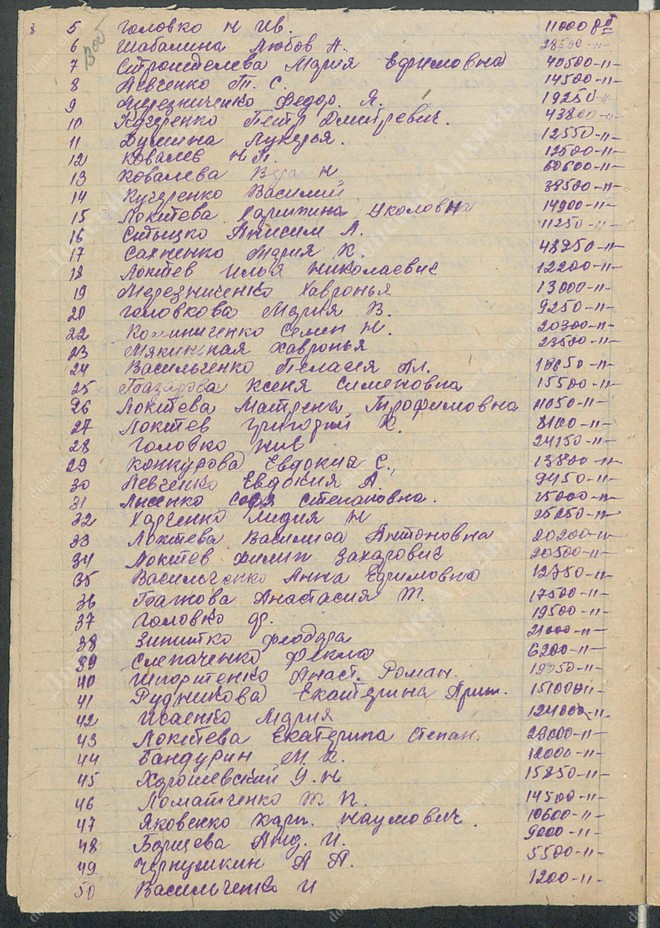 5 Головко Н Ив. 11000 р
6 Шабалина Любов А. 28500-"-
7 Строителева Мария Ефимовна 40500-"-
8 Левченко П. С. 14500-"-
9 Мерезниченко Федор. Я. 19250-"-
10 Кучеренко Петр Дмитревич. 43800-"-
11 Душина Лукерья. 12550-"-
12 Ковалев Н П. 12500-"-
13 Ковалева Вера Н 60500-"-
14 Кучеренко Василий 38500-"-
15 Локтева Николовна 14900-"-
16 Анисим Л. 11250-"-
17 Сахненко Мария К. 48750-"-
18 Локтев Илья Николаевич 12200-"-
19 Мерезниченко Хавронья 13000-"-
20 Головкова Мария В. 9250-"-
22 Калиниченко Семен Н. 20300-"-
23 Мякинская Хавронья 23500-"-
24 Васильченко Пелагея Пл. 18650-"-
25 Ксеня Сименовна 15500-"-
26 Локтева Матрена Трофимовна 11050-"-
27 Локтев Григорий Х. 8100-"-
28 Головко 24150-"-
29 Конкурова Евдокия С. 13800-"-
30 Левченко Евдокия А. 9450-"-
31 Лысенко Софя Степановна. 25000-"-
32 Харченко Лидия Н 25250-"-
33 Локтева Василиса Антоновна 20200-"-
34 Локтев Филип Захарович 20500-"-
35 Васильченко Анна Ефимовна 12750-"-
36 Бажова Анастасия Т. 17500-"-
37 Головко др. 19500-"-
38 Феодора 21000-"-
39 Слепаченко Фекла 6200-"-
40 Анаст. Роман. 19050-"-
41 Рудникова Екатерина Ариш. 15100-"-
42 Исаенко Мария 124000-"-
43 Локтева Екатерина Степан. 29000-"-
44 Бандурин М. К. 12000-"-
45 Харошевский У. Н 15850-"-
46 Ломатченко Ж. П. 14500-"-
47 Яковенко Харт. Наумович. 10600-"-
48 Борщева Анд. И. 9000-"-
49 Чернушкин А П. 5500-"-
50 Васильченко И 1200-"-